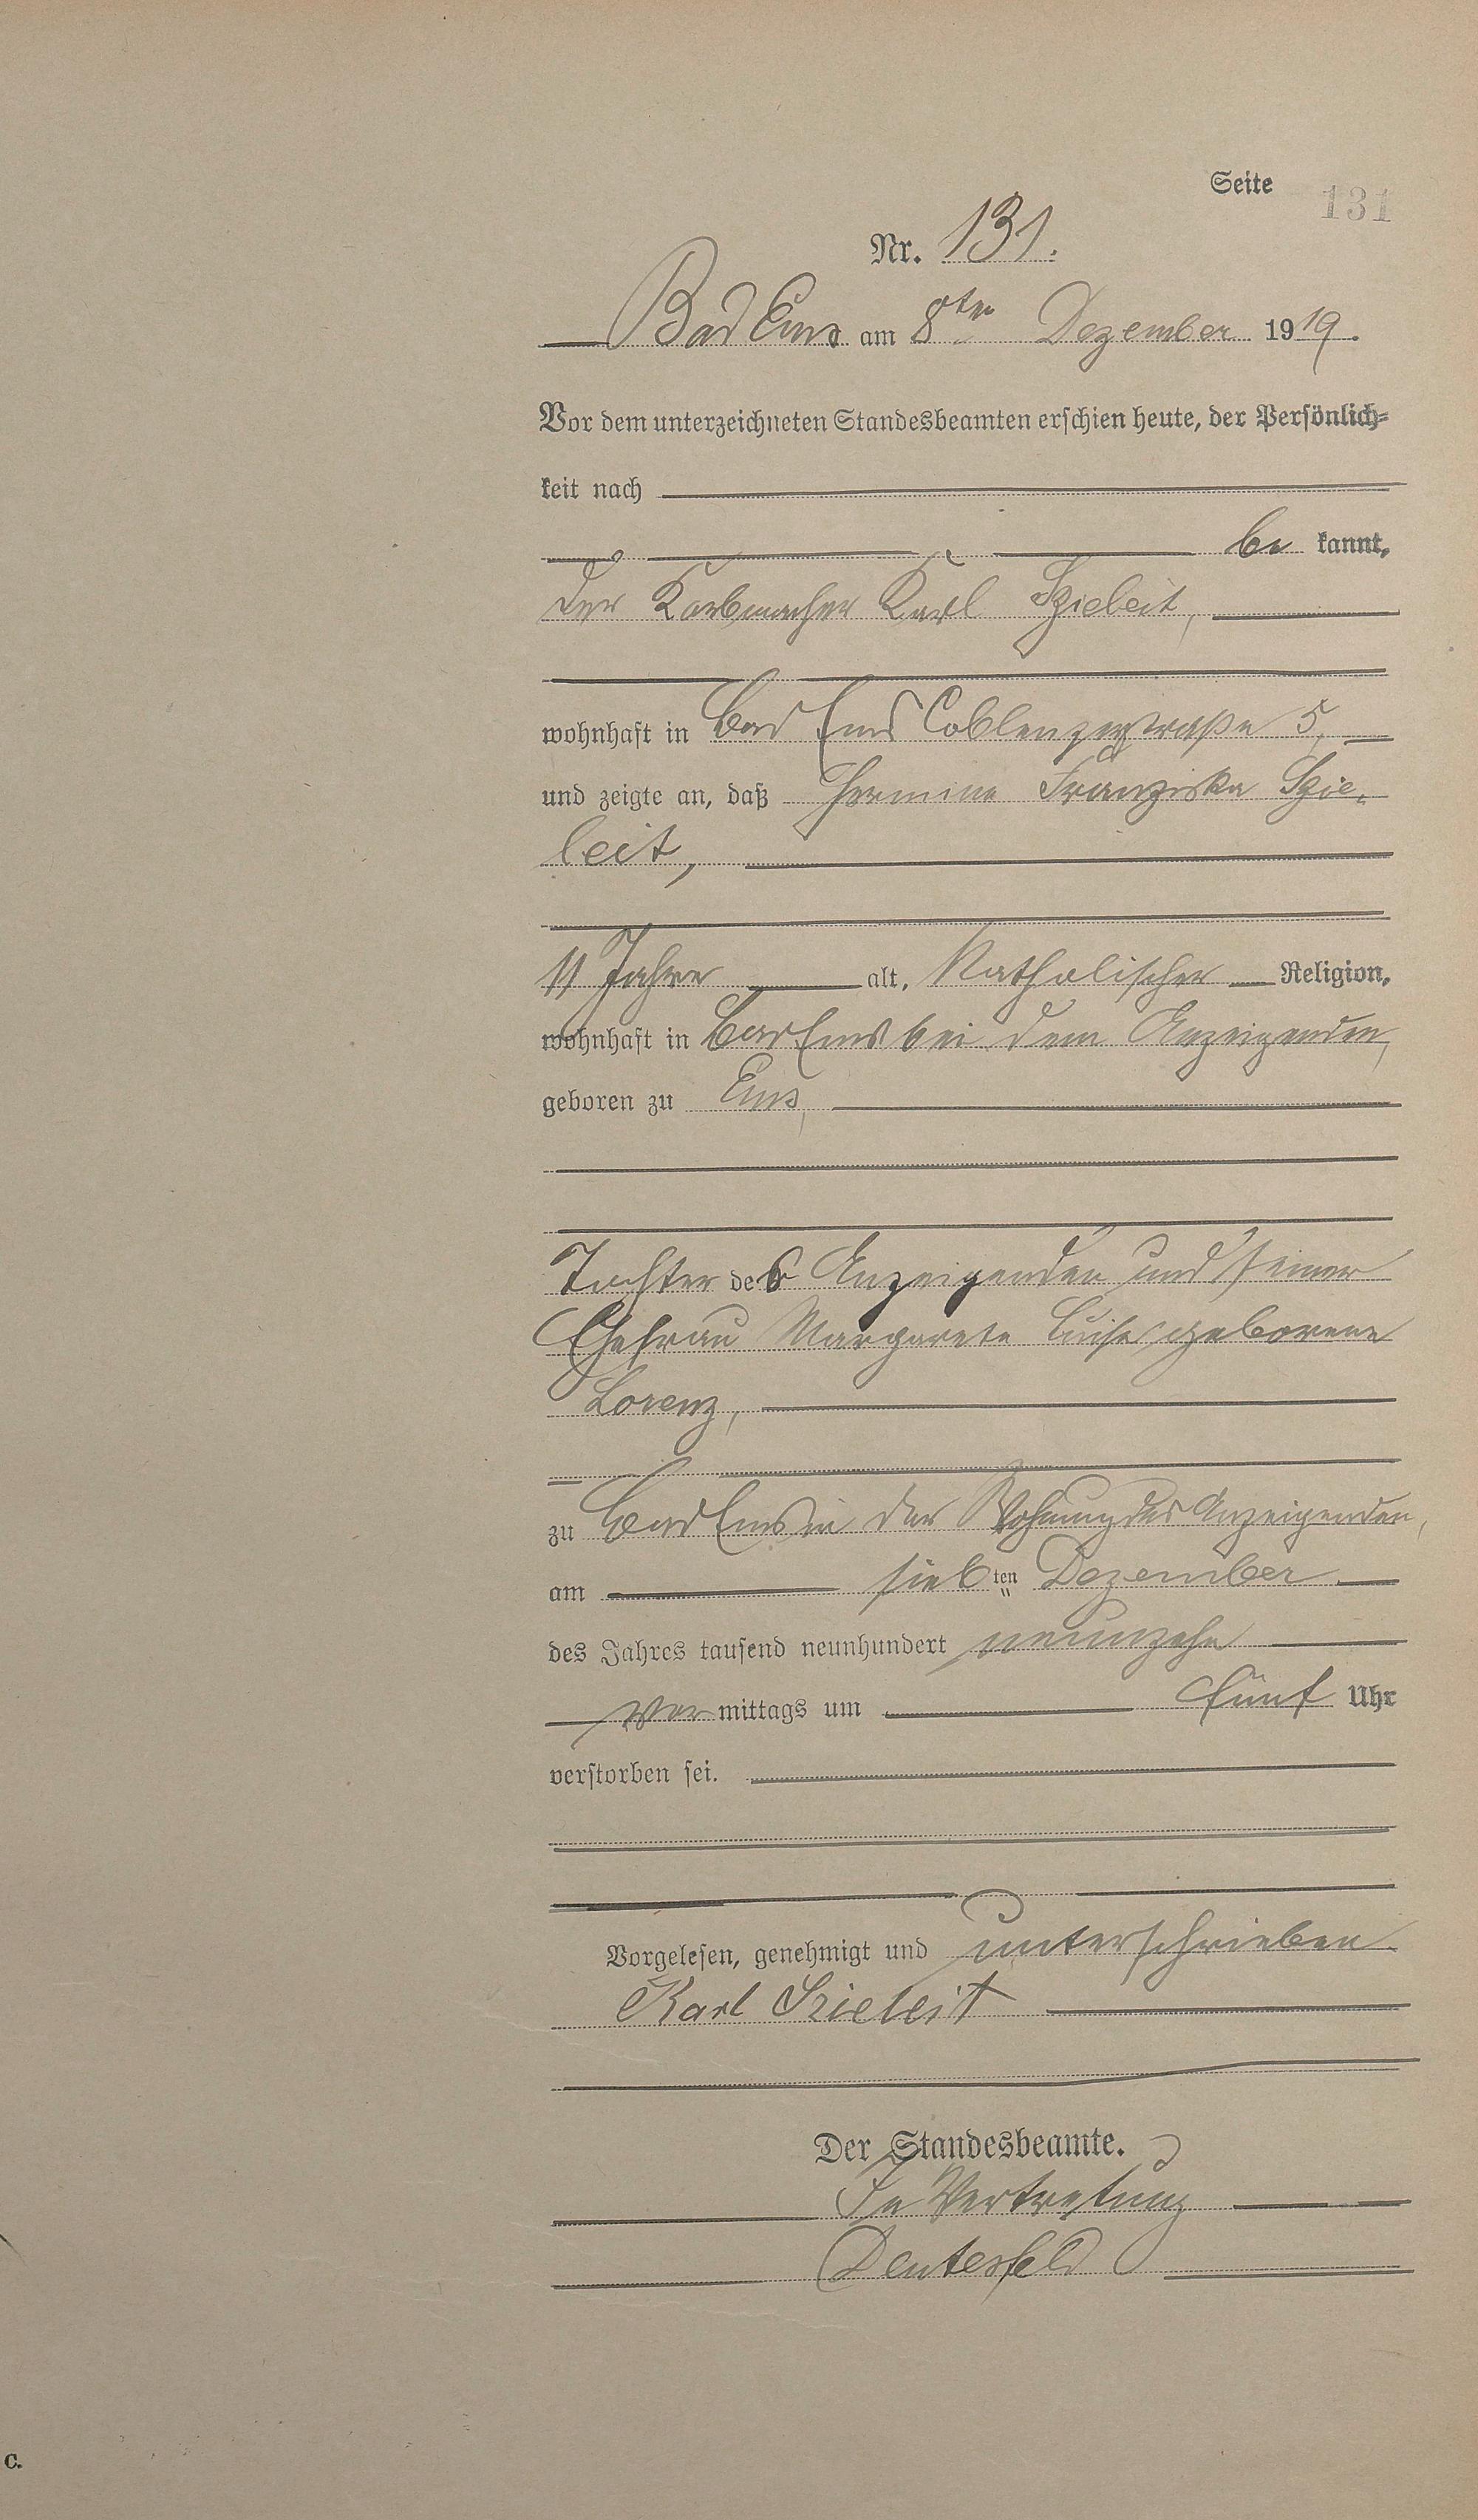 Seite 131
Nr. 131.
Bad Ems am 8ten Dezember 1919.
Vor dem unterzeichneten Standesbeamten erschien heute, der Persönlich-
keit nach
be kannt,
der Korbmacher Karl Szieleit,
wohnhaft in Bad Ems Coblenzerstraße 5,
und zeigte an, daß Hermine Franziska Szie-
leit,
11 Jahre alt, Katholischer Religion,
wohnhaft in Bad Ems bei dem Anzeigenden,
geboren zu Ems,
Tochter des Anzeigenden und seiner
Ehefrau Margarete Luise geborene
Lorenz,
zu Bad Ems in der Wohnung des Anzeigenden,
am siebten Dezember
des Jahres tausend neunhundert neunzehn
Vor mittags um fünf Uhr
verstorben sei.
Vorgelesen, genehmigt und unterschrieben
Karl Szieleit
Der Standesbeamte.
In Vertretung
C.